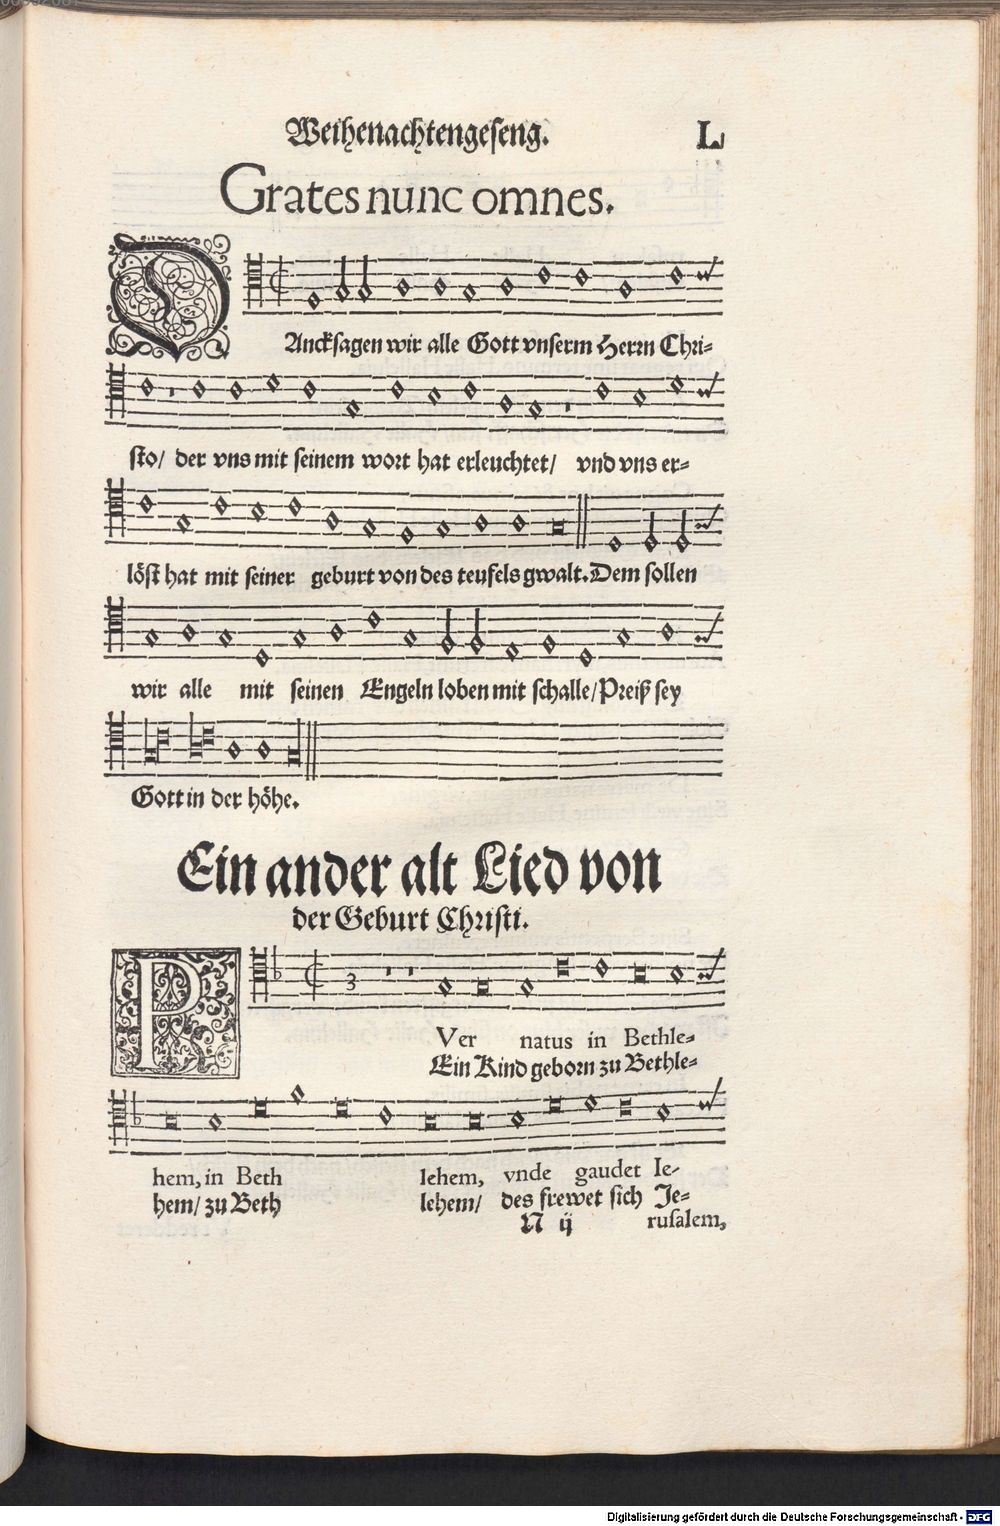 Weihenachtengeseng. L
Grates nunc omnes.
DAncksagen wir alle Gott vnserm Herrn Chri=
sto/ der vns mit seinem wort hat erleuchtet/ vnd vns er=
löst hat mit seiner geburt von des teufels gwalt. Dem sollen
wir alle mit seinen Engeln loben mit schalle/ Preiß sey
Gott in der höhe.
Ein ander alt Lied von
der Geburt Christi.
3
PVer natus in Bethle=
Ein Kind geborn zu Bethle=
hem, in Beth lehem, vnde gaudet Ie-
hem/ zu Beth lehem/ des frewet sich Je=
N ij rusalem,
Digitalisierung gefördert durch die Deutsche Forschungsgemeinschaft - DFG